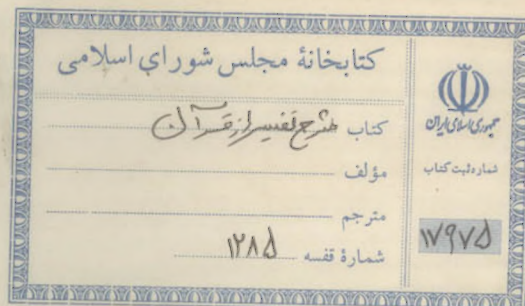 کتابخانهٔ مجلس شورای اسلامی
کتاب شرح تفسیر از قرآن
مؤلف
مترجم
شمارهٔ قفسه ۱۲۸۵
جمهوری اسلامی ایران
شمارهٔ ثبت کتاب
۱۷۹۷۵